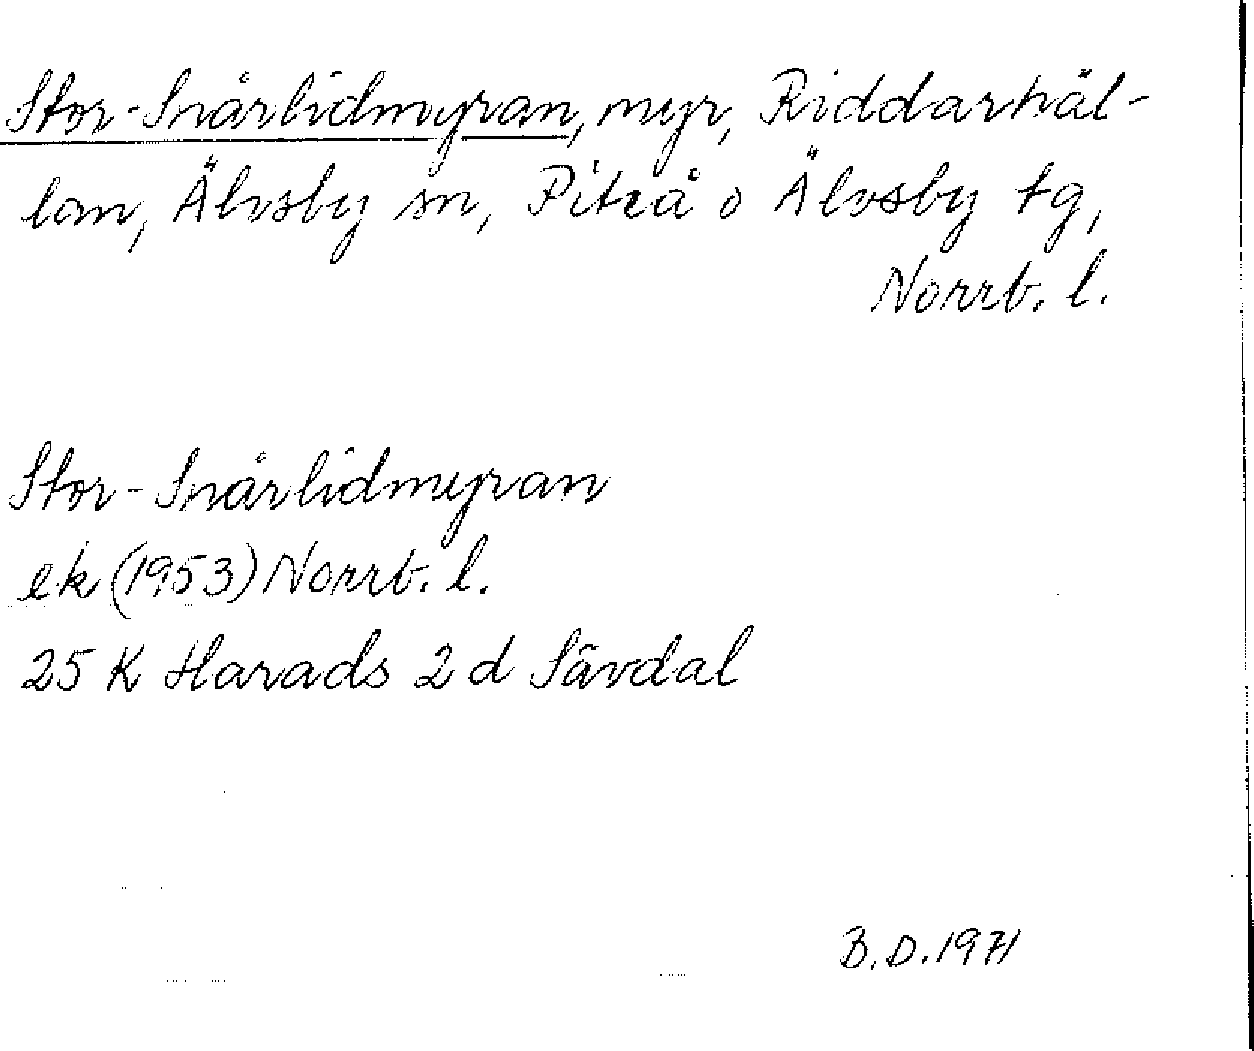 Stor-Snårlidmyran, myr, Riddarhäl-
lan, Älvsby sn, Piteå o Älvsby tg,
Norrb. l.
Stor-Snårlidmyran
ek (1953) Norrb. l.
25 K Harads 2 d Sävdal
B.D. 1971